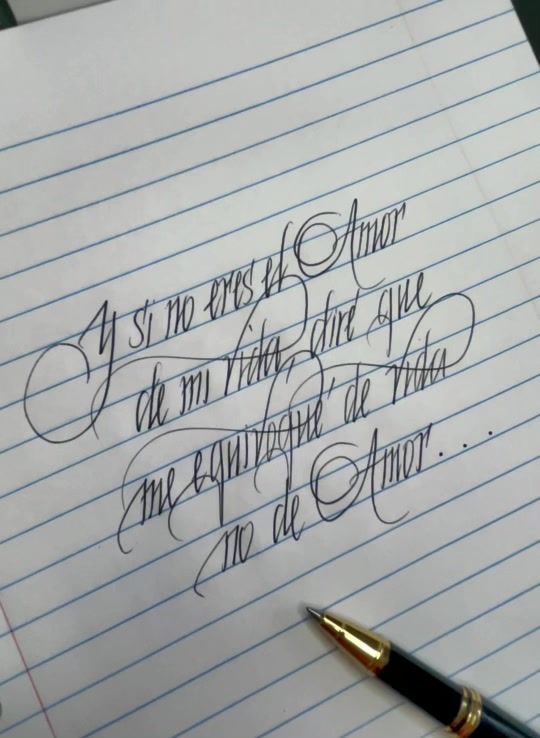 Y si no eres el Amor
de mi vida, diré que
me equivoqué de vida
no de Amor....